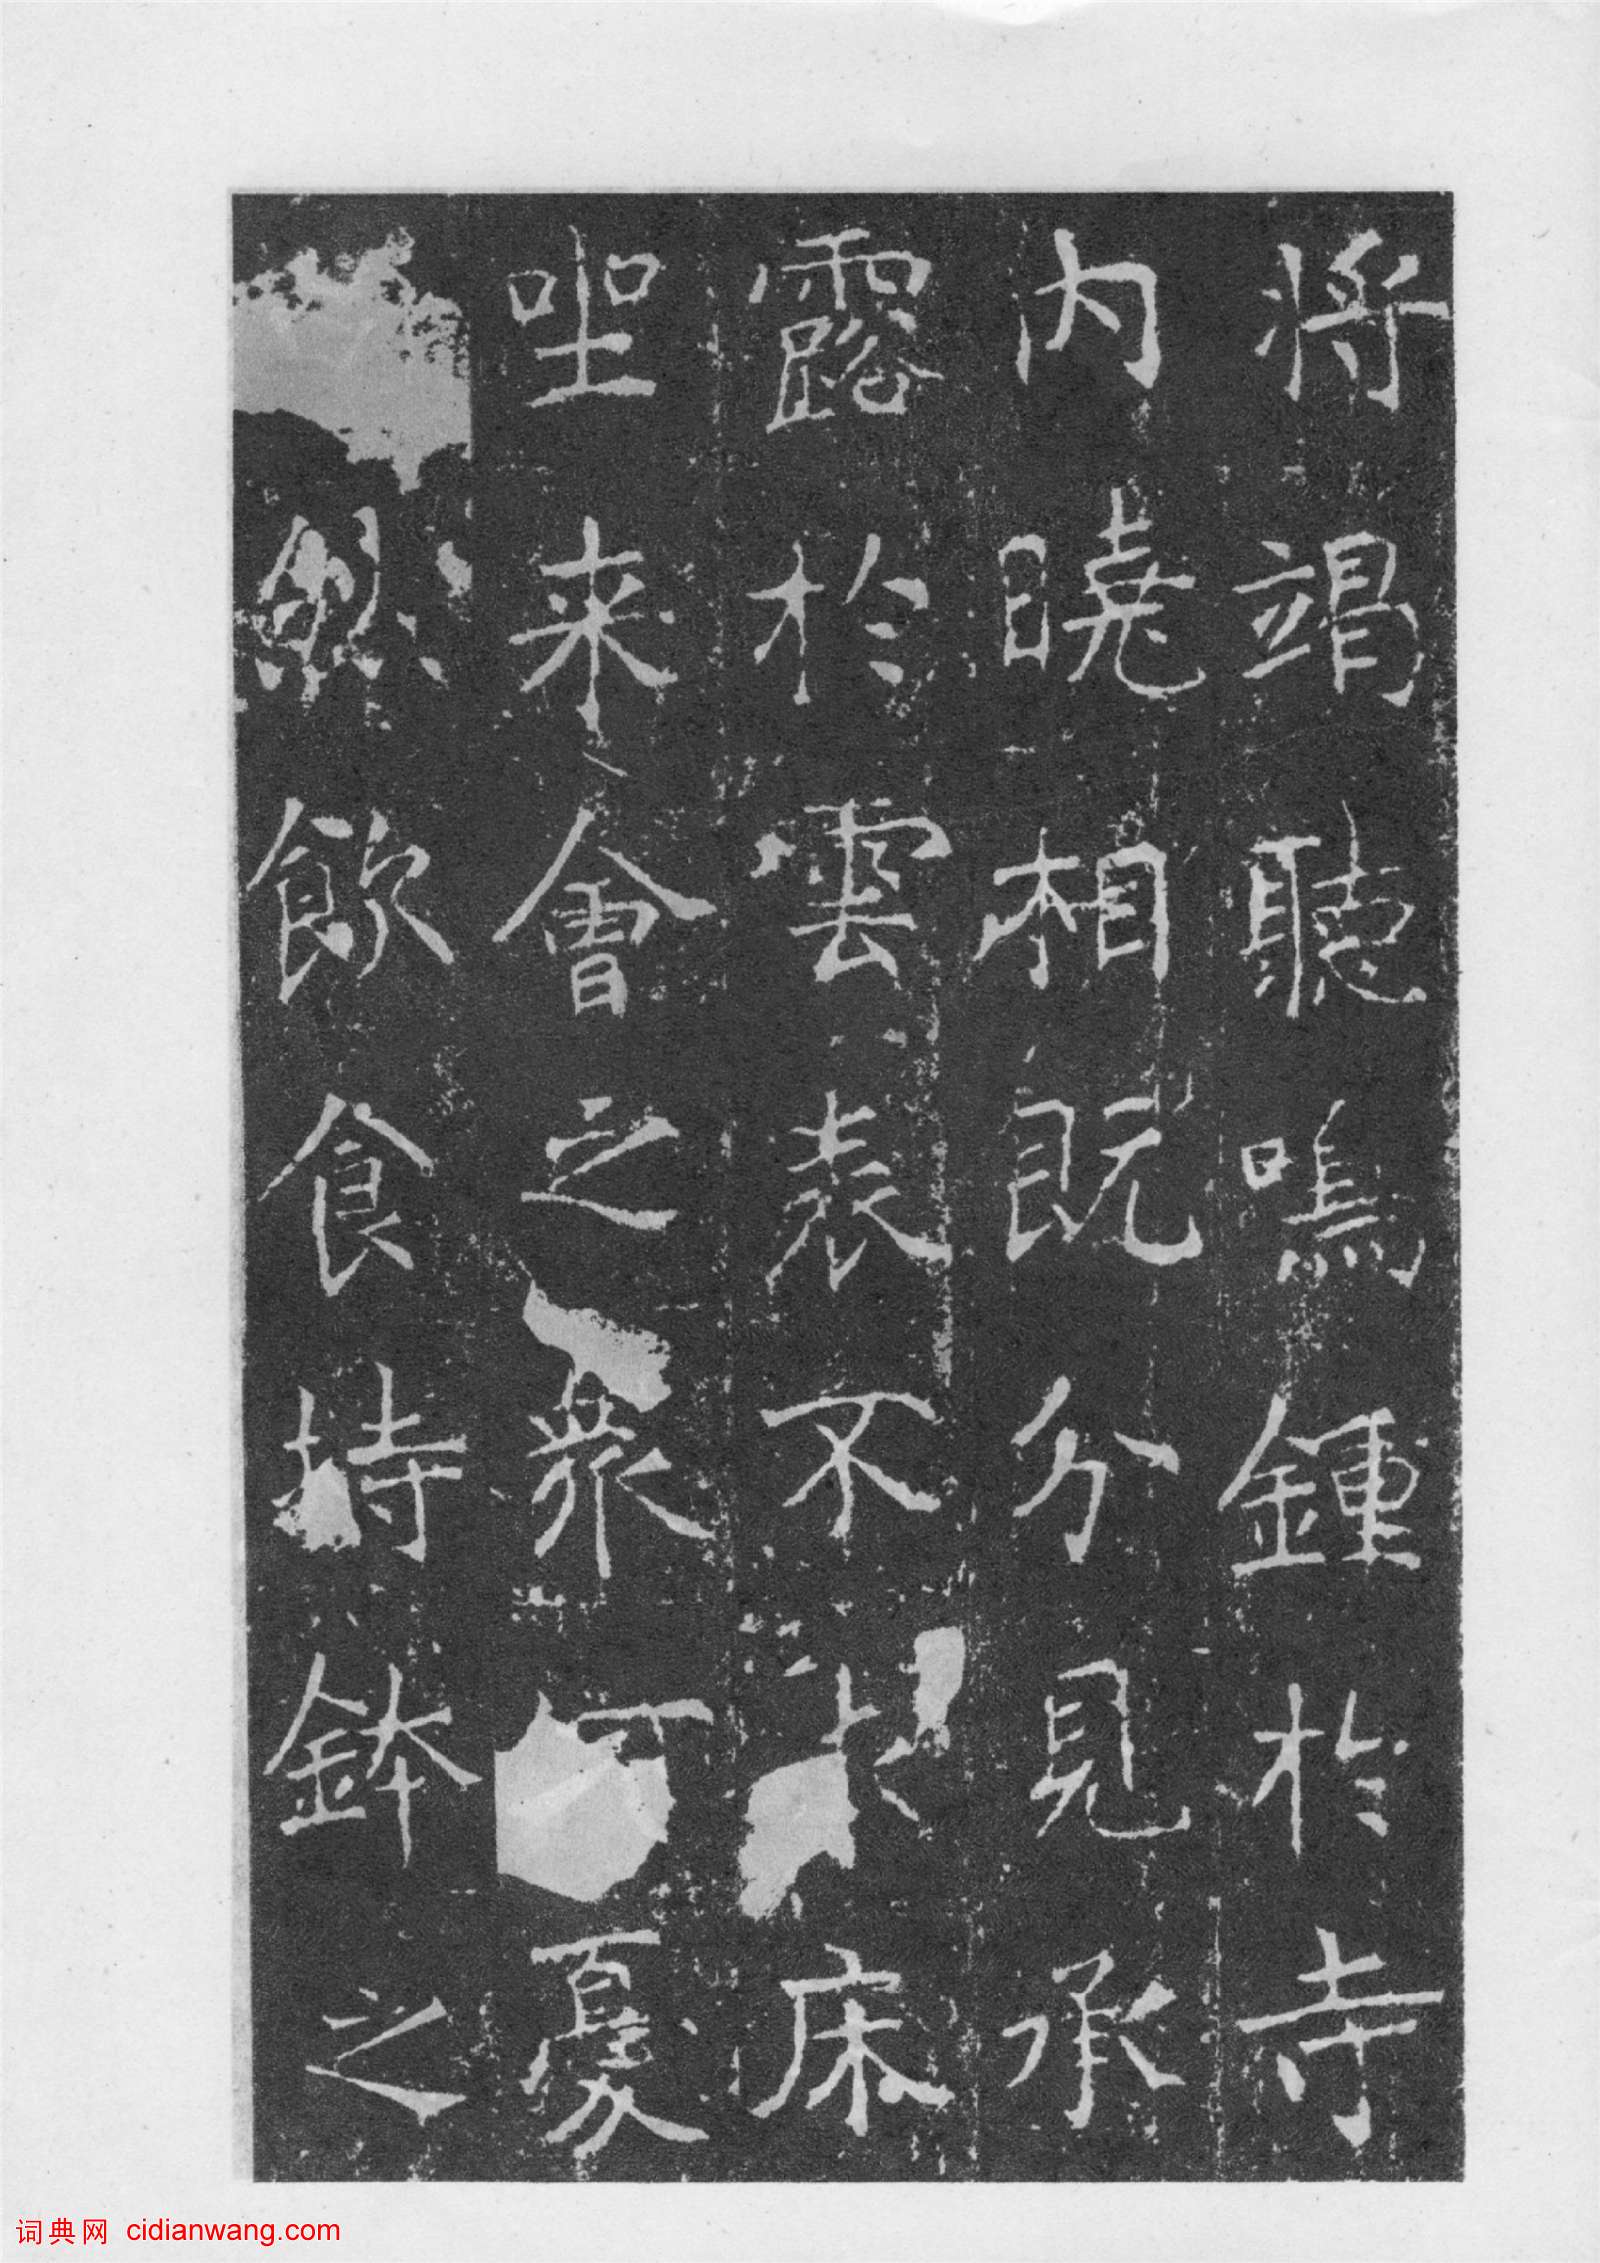 將竭聽鳴鍾於寺
内曉相既分見承
露於雲表不床
坐来會之衆夏
然飲食持鉢之
词典网 cidianwang.com